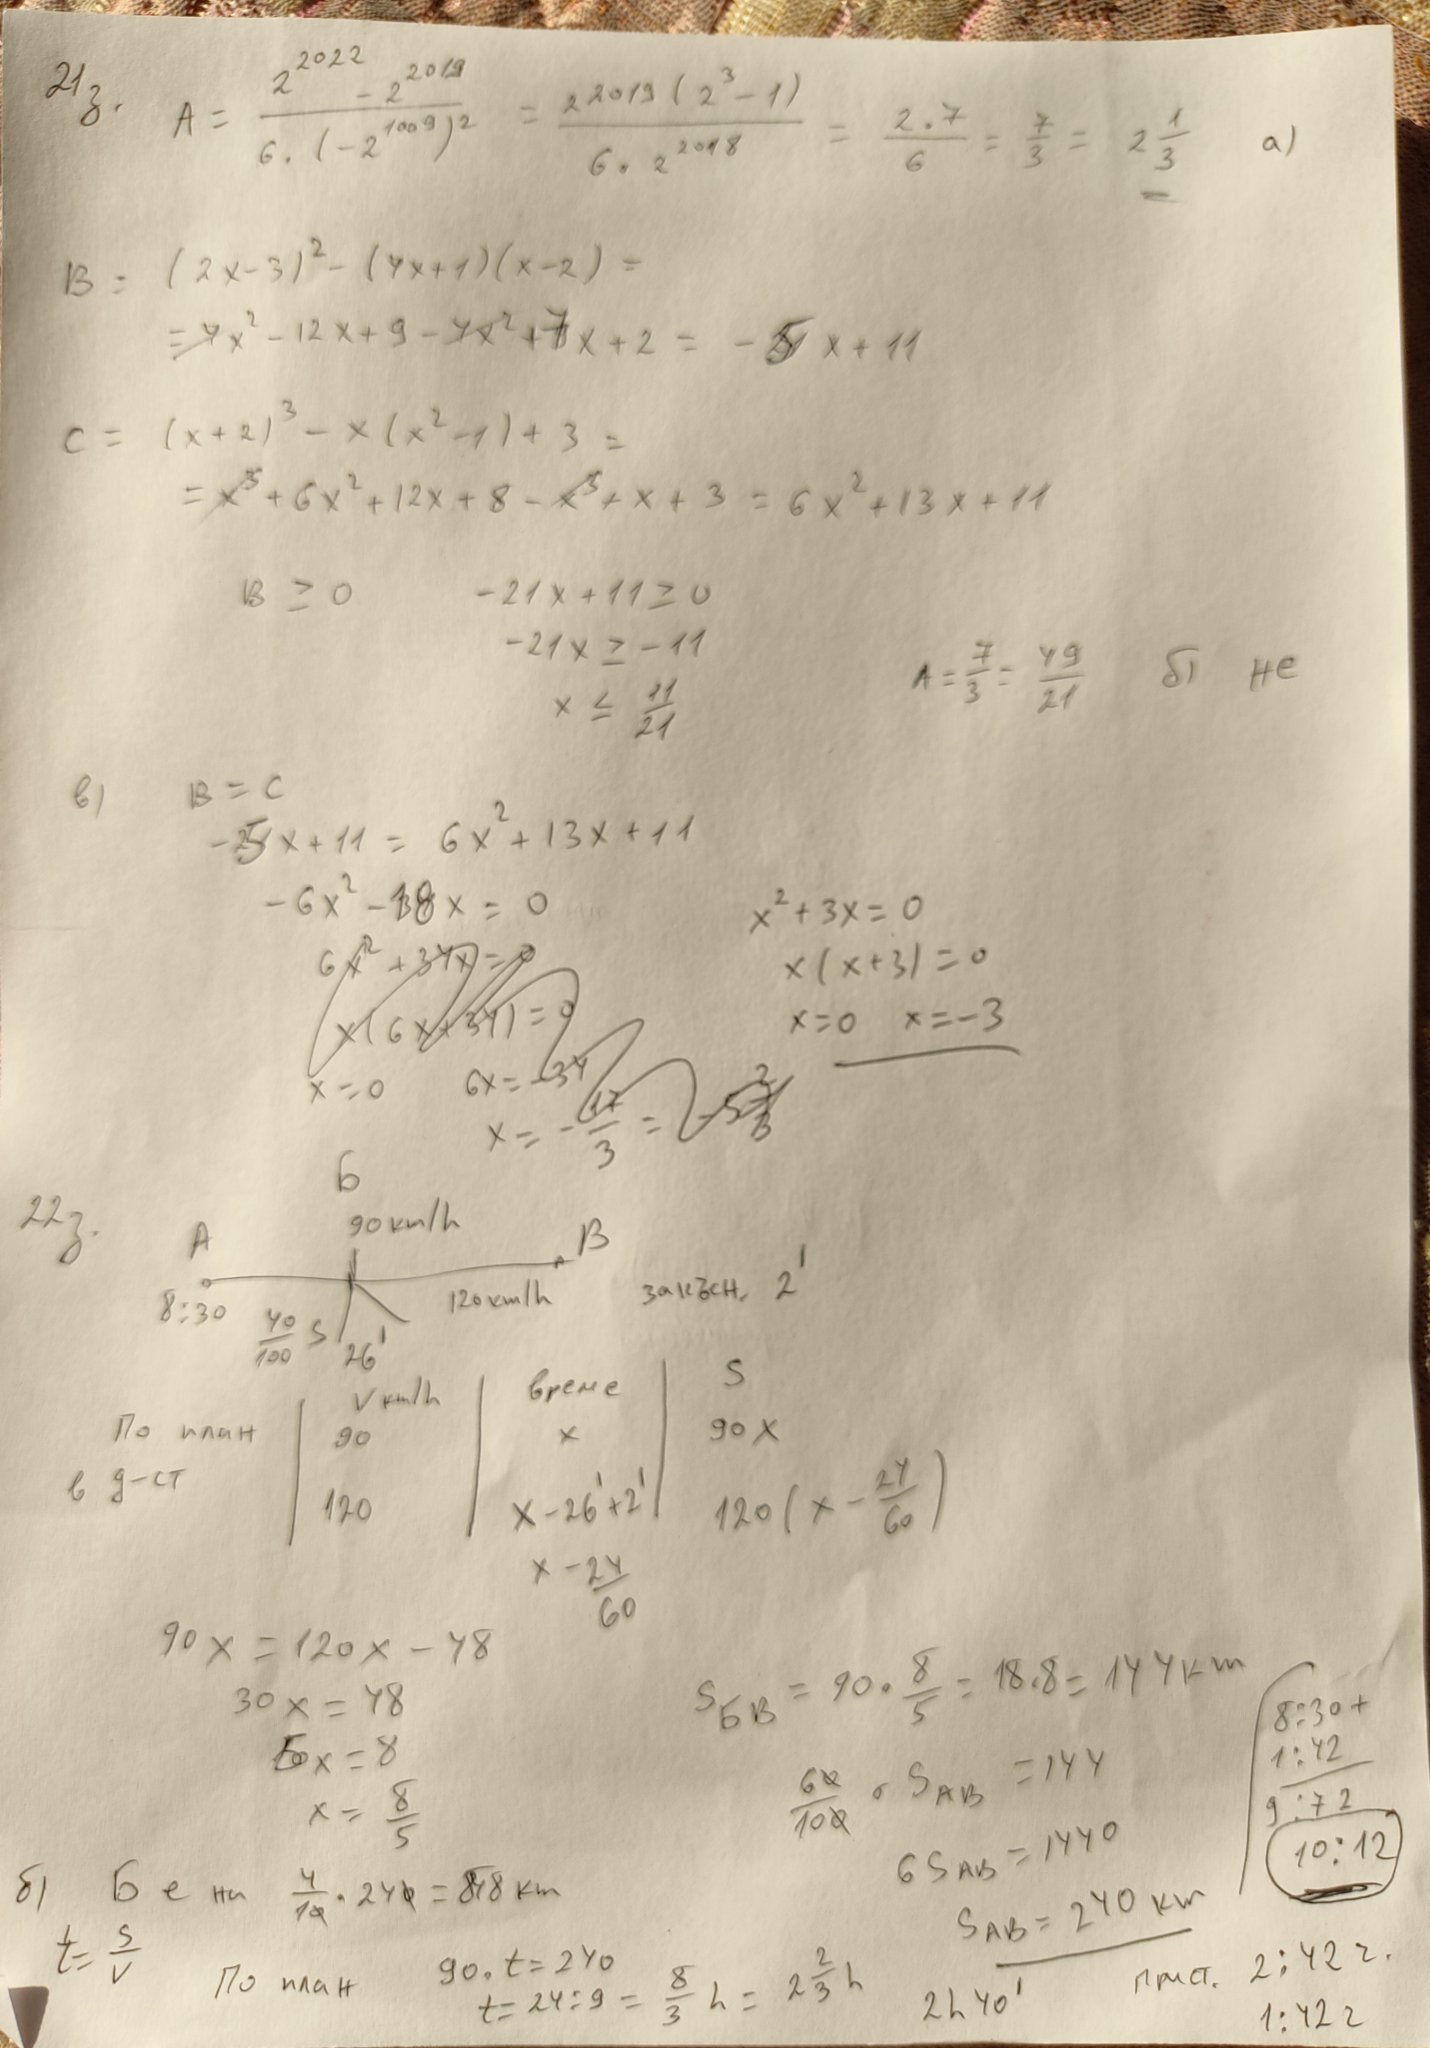 21з. A = (2^2022 - 2^2019)/(6.(-2^1009)^2) = (2^2019(2^3-1))/(6.2^2018) = 2.7/6 = 7/3 = 2 1/3 а)
B = (2x-3)^2 - (4x+1)(x-2) =
= 4x^2 - 12x + 9 - 4x^2 + 7x + 2 = -5x + 11
C = (x+2)^3 - x(x^2-1) + 3 =
= x^3 + 6x^2 + 12x + 8 - x^3 + x + 3 = 6x^2 + 13x + 11
B ≥ 0 -21x + 11 ≥ 0
-21x ≥ -11
x ≤ 11/21 A = 7/3 = 49/21 б) не
в) B = C
-5x + 11 = 6x^2 + 13x + 11
-6x^2 - 18x = 0 x^2 + 3x = 0
6x^2 + 34x = 0 x(x+3) = 0
x(6x+34) = 0 x=0 x=-3
x=0 6x=-34
x = -17/3 = -5 2/3
22з. Б
90 km/h
A B
8:30 40/100 S 26' 120 km/h закъсн. 2'
V km/h време S
По план 90 x 90x
в д-ст 120 x-26'+2' 120(x - 24/60)
x - 24/60
90x = 120x - 48
30x = 48
5x = 8
x = 8/5
S_БВ = 90.8/5 = 18.8 = 144 km
60/100 . S_AB = 144
6 S_AB = 1440
S_AB = 240 km
8:30+
1:42
9:72
10:12
б) Б е на 4/10 . 240 = km
t = S/V
По план 90.t = 240
t = 24:9 = 8/3 h = 2 2/3 h 2h 40' прист. 2:42 г.
1:42 г